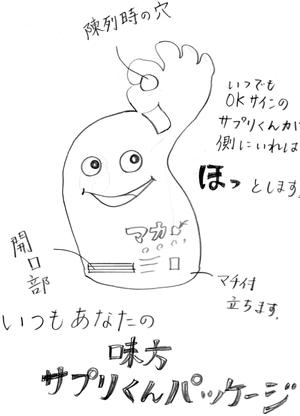 陳列時の穴
いつでも
OKサインの
サプリくんが
側にいれば
ほっ
とします。
マカ
開口部
マチ付
立ちます。
いつもあなたの
味方
サプリくんパッケージ